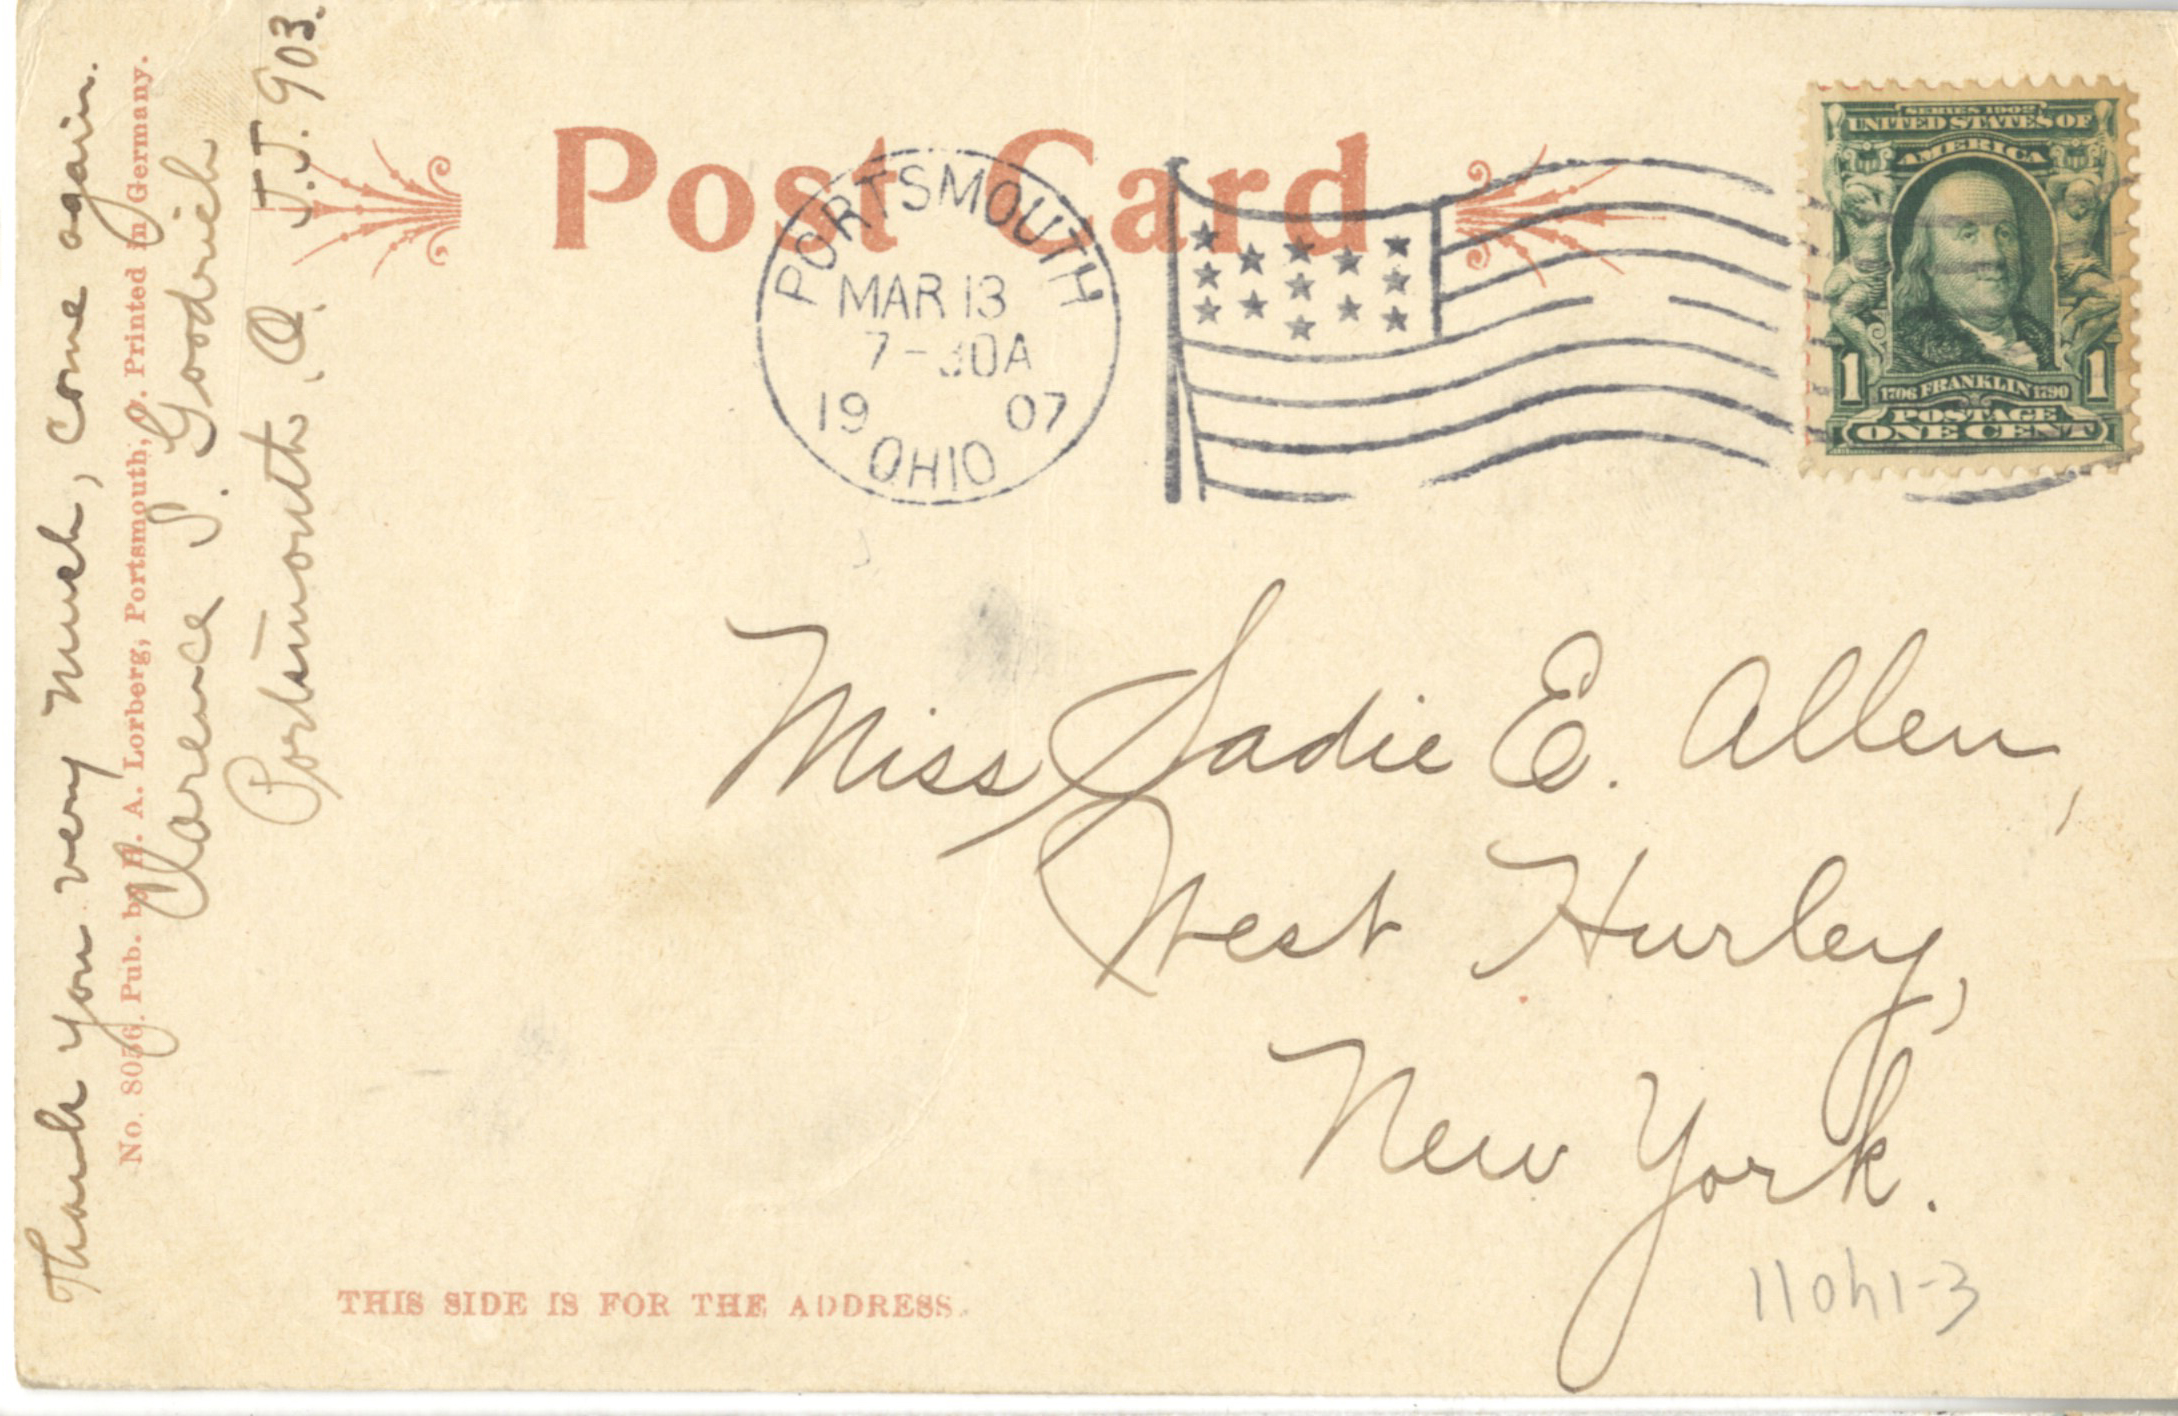 Thank you very much, come again.
No. 8056. Pub. by H. A. Lorberg, Portsmouth, O. Printed in Germany.
Clarence S. Goodrich
Portsmouth, O.
J.J. 903.
Post Card
PORTSMOUTH
MAR 13
7-30A
1907
OHIO
SERIES 1902
UNITED STATES OF
AMERICA
1 1706 FRANKLIN 1790 1
POSTAGE
ONE CENT
Miss Sadie E. Allen,
West Hurley,
New York.
THIS SIDE IS FOR THE ADDRESS.